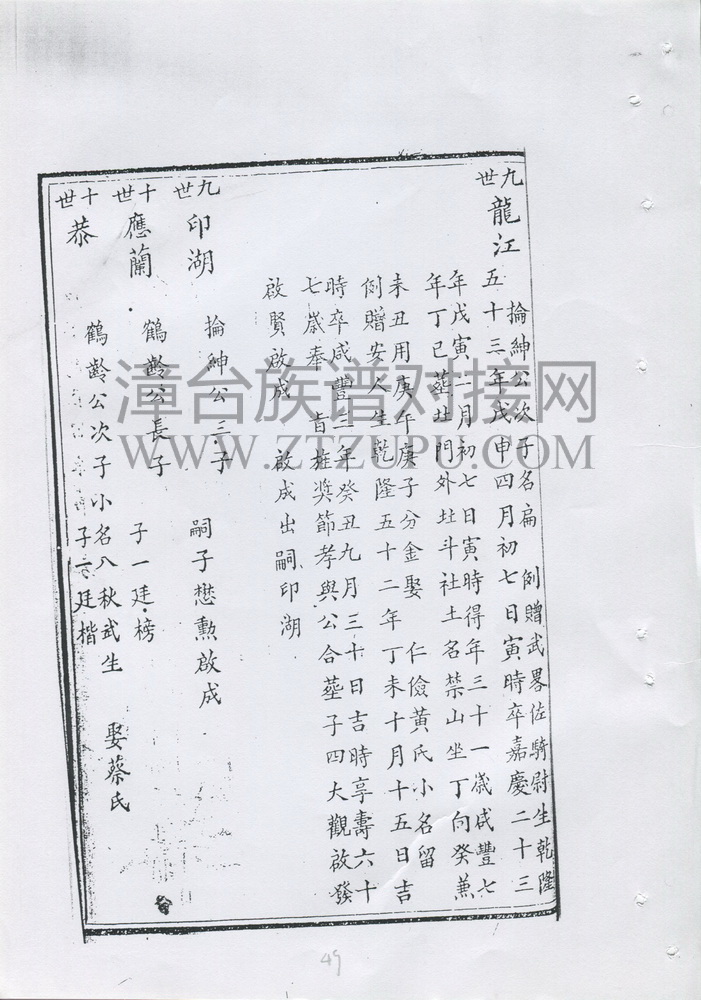 九世
龍江
掄紳公次子名扁 例贈武畧佐騎尉生乾隆
五十三年戊申四月初七日寅時卒嘉慶二十三
年戊寅二月初七日寅時得年三十一歲咸豐七
年丁巳葬圵門外圵斗社土名禁山坐丁向癸兼
未丑用庚午庚子分金娶 仁儉黃氏小名留
例贈安人生乾隆五十二年丁未十月十五日吉
時卒咸豐三年癸丑九月三十日吉時享壽六十
七歲奉 旨旌獎節孝與公合塟子四大觀啟發
啟賢啟成 啟成出嗣印湖
九世
印湖
掄紳公三子 嗣子懋勲啟成
十世
應蘭
鶴齡公長子 子一廷榜
十世
恭
鶴齡公次子小名八秋武生 娶蔡氏
子一廷楷
49
漳台族谱对接网
WWW.ZTZUPU.COM